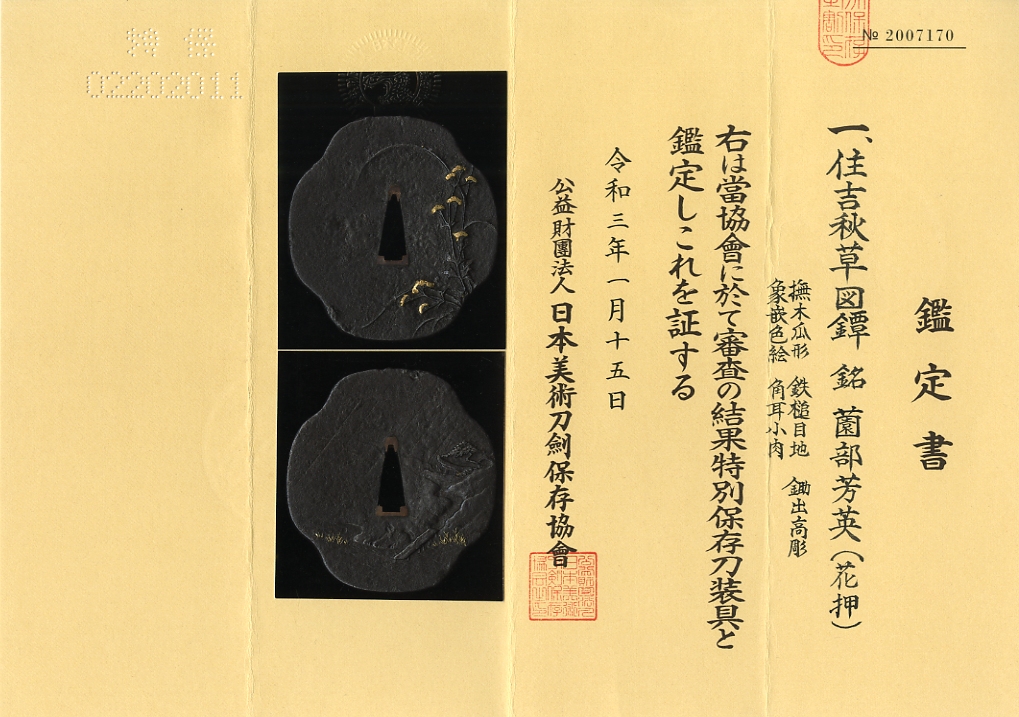 № 2007170
鑑定書
一、住吉秋草図鐔 銘 薗部芳英(花押)
撫木瓜形 鉄槌目地 鋤出高彫
象嵌色絵 角耳小肉
右は當協會に於て審査の結果特別保存刀装具と
鑑定しこれを証する
令和三年一月十五日
公益財團法人 日本美術刀劍保存協會
特 保
02202011